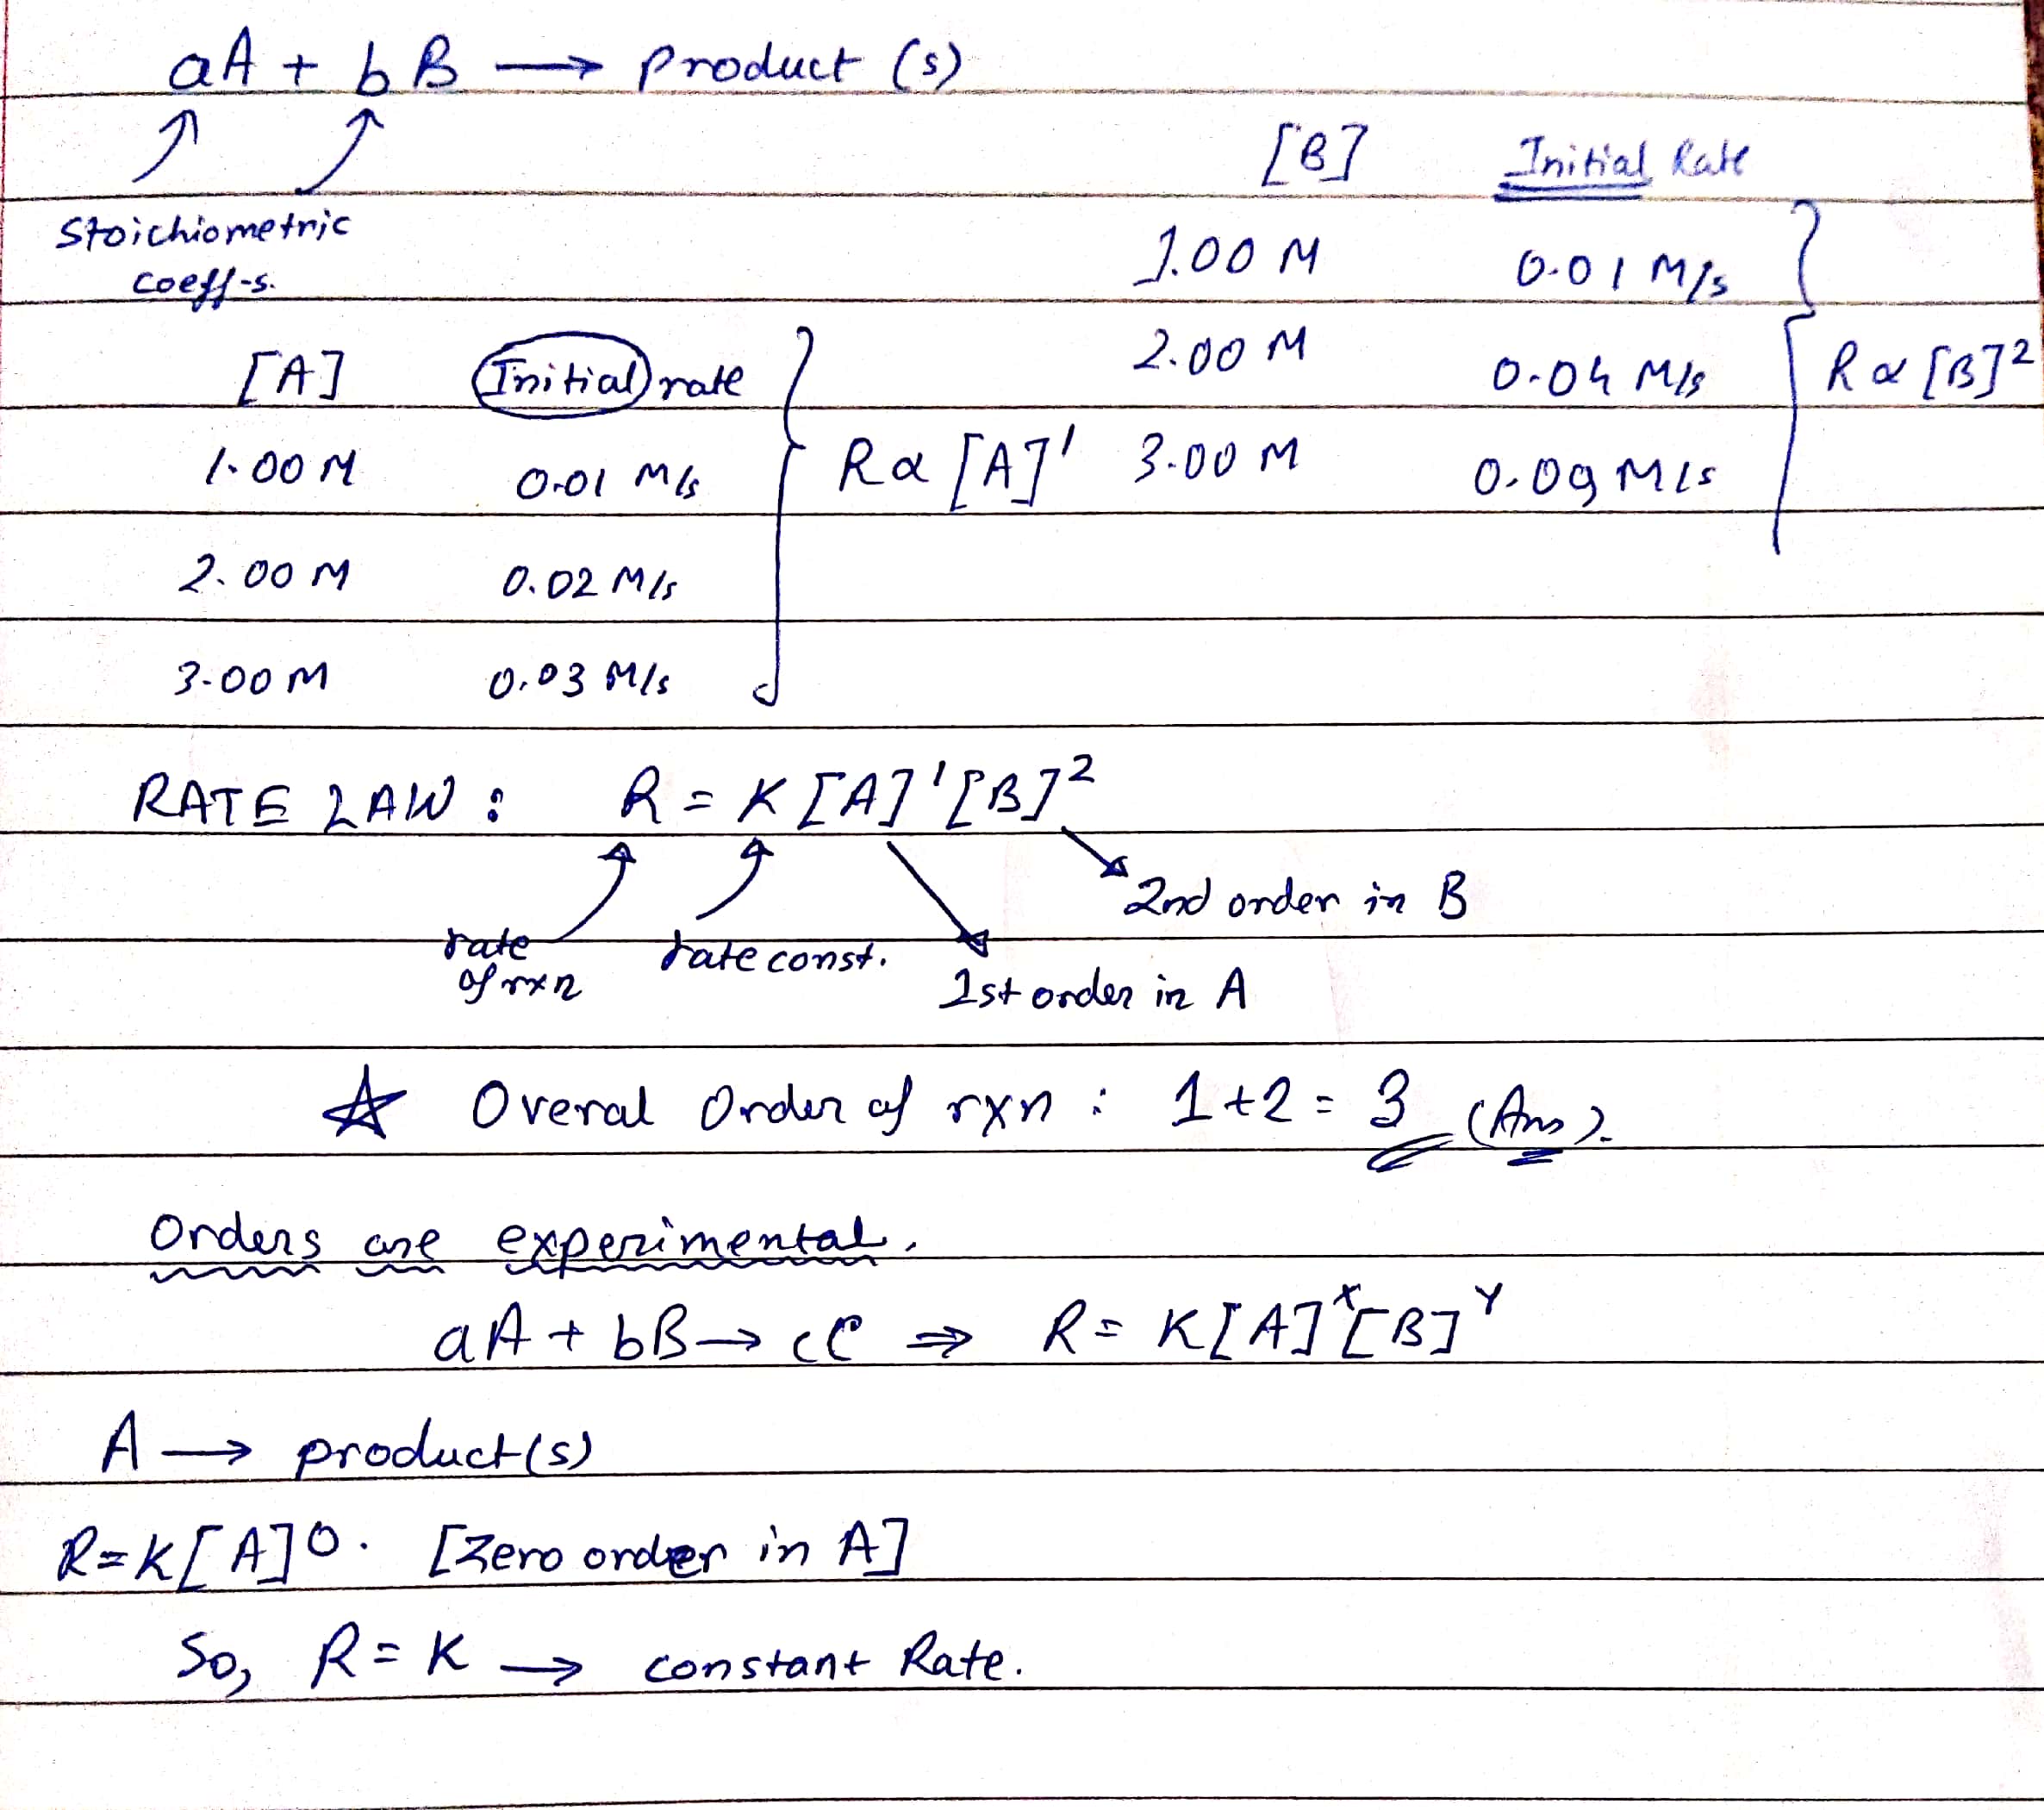 aA + bB → product (s)
Stoichiometric
coeff-s.
[B] Initial Rate
1.00 M 0.01 M/s
2.00 M 0.04 M/s
3.00 M 0.09 M/s
R α [B]²
[A] Initial rate
1.00 M 0.01 M/s
2.00 M 0.02 M/s
3.00 M 0.03 M/s
R α [A]¹
RATE LAW : R = K [A]¹ [B]²
2nd order in B
rate
of rxn
rate const.
1st order in A
☆ Overal Order of rxn : 1+2 = 3 (Ans).
Orders are experimental.
aA + bB → cC ⇒ R = K[A]ˣ[B]ʸ
A → product(s)
R=K[A]⁰. [Zero order in A]
So, R = K → constant Rate.